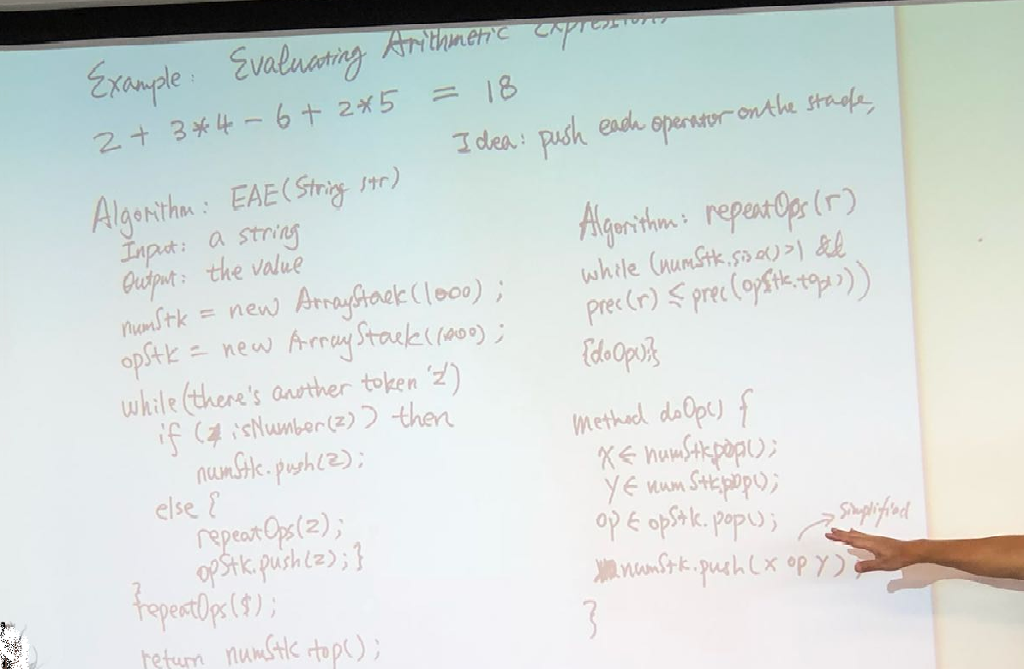 Example: Evaluating Arithmetic Expressions
2 + 3*4 - 6 + 2*5 = 18
Idea: push each operator on the stack,
Algorithm: EAE(String str)
Input: a string
Output: the value
numStk = new ArrayStack(1000);
opStk = new ArrayStack(1000);
while(there's another token 'z')
if (isNumber(z)) then
numStk.push(z);
else {
repeatOps(z);
opStk.push(z);}
}
repeatOps($);
return numStk.top();
Algorithm: repeatOps(r)
while (numStk.size()>1 &&
prec(r) ≤ prec(opStk.top()))
{doOp()};
method doOp() {
X ← numStk.pop();
Y ← numStk.pop();
op ← opStk.pop();
simplified
numStk.push(X op Y);
}